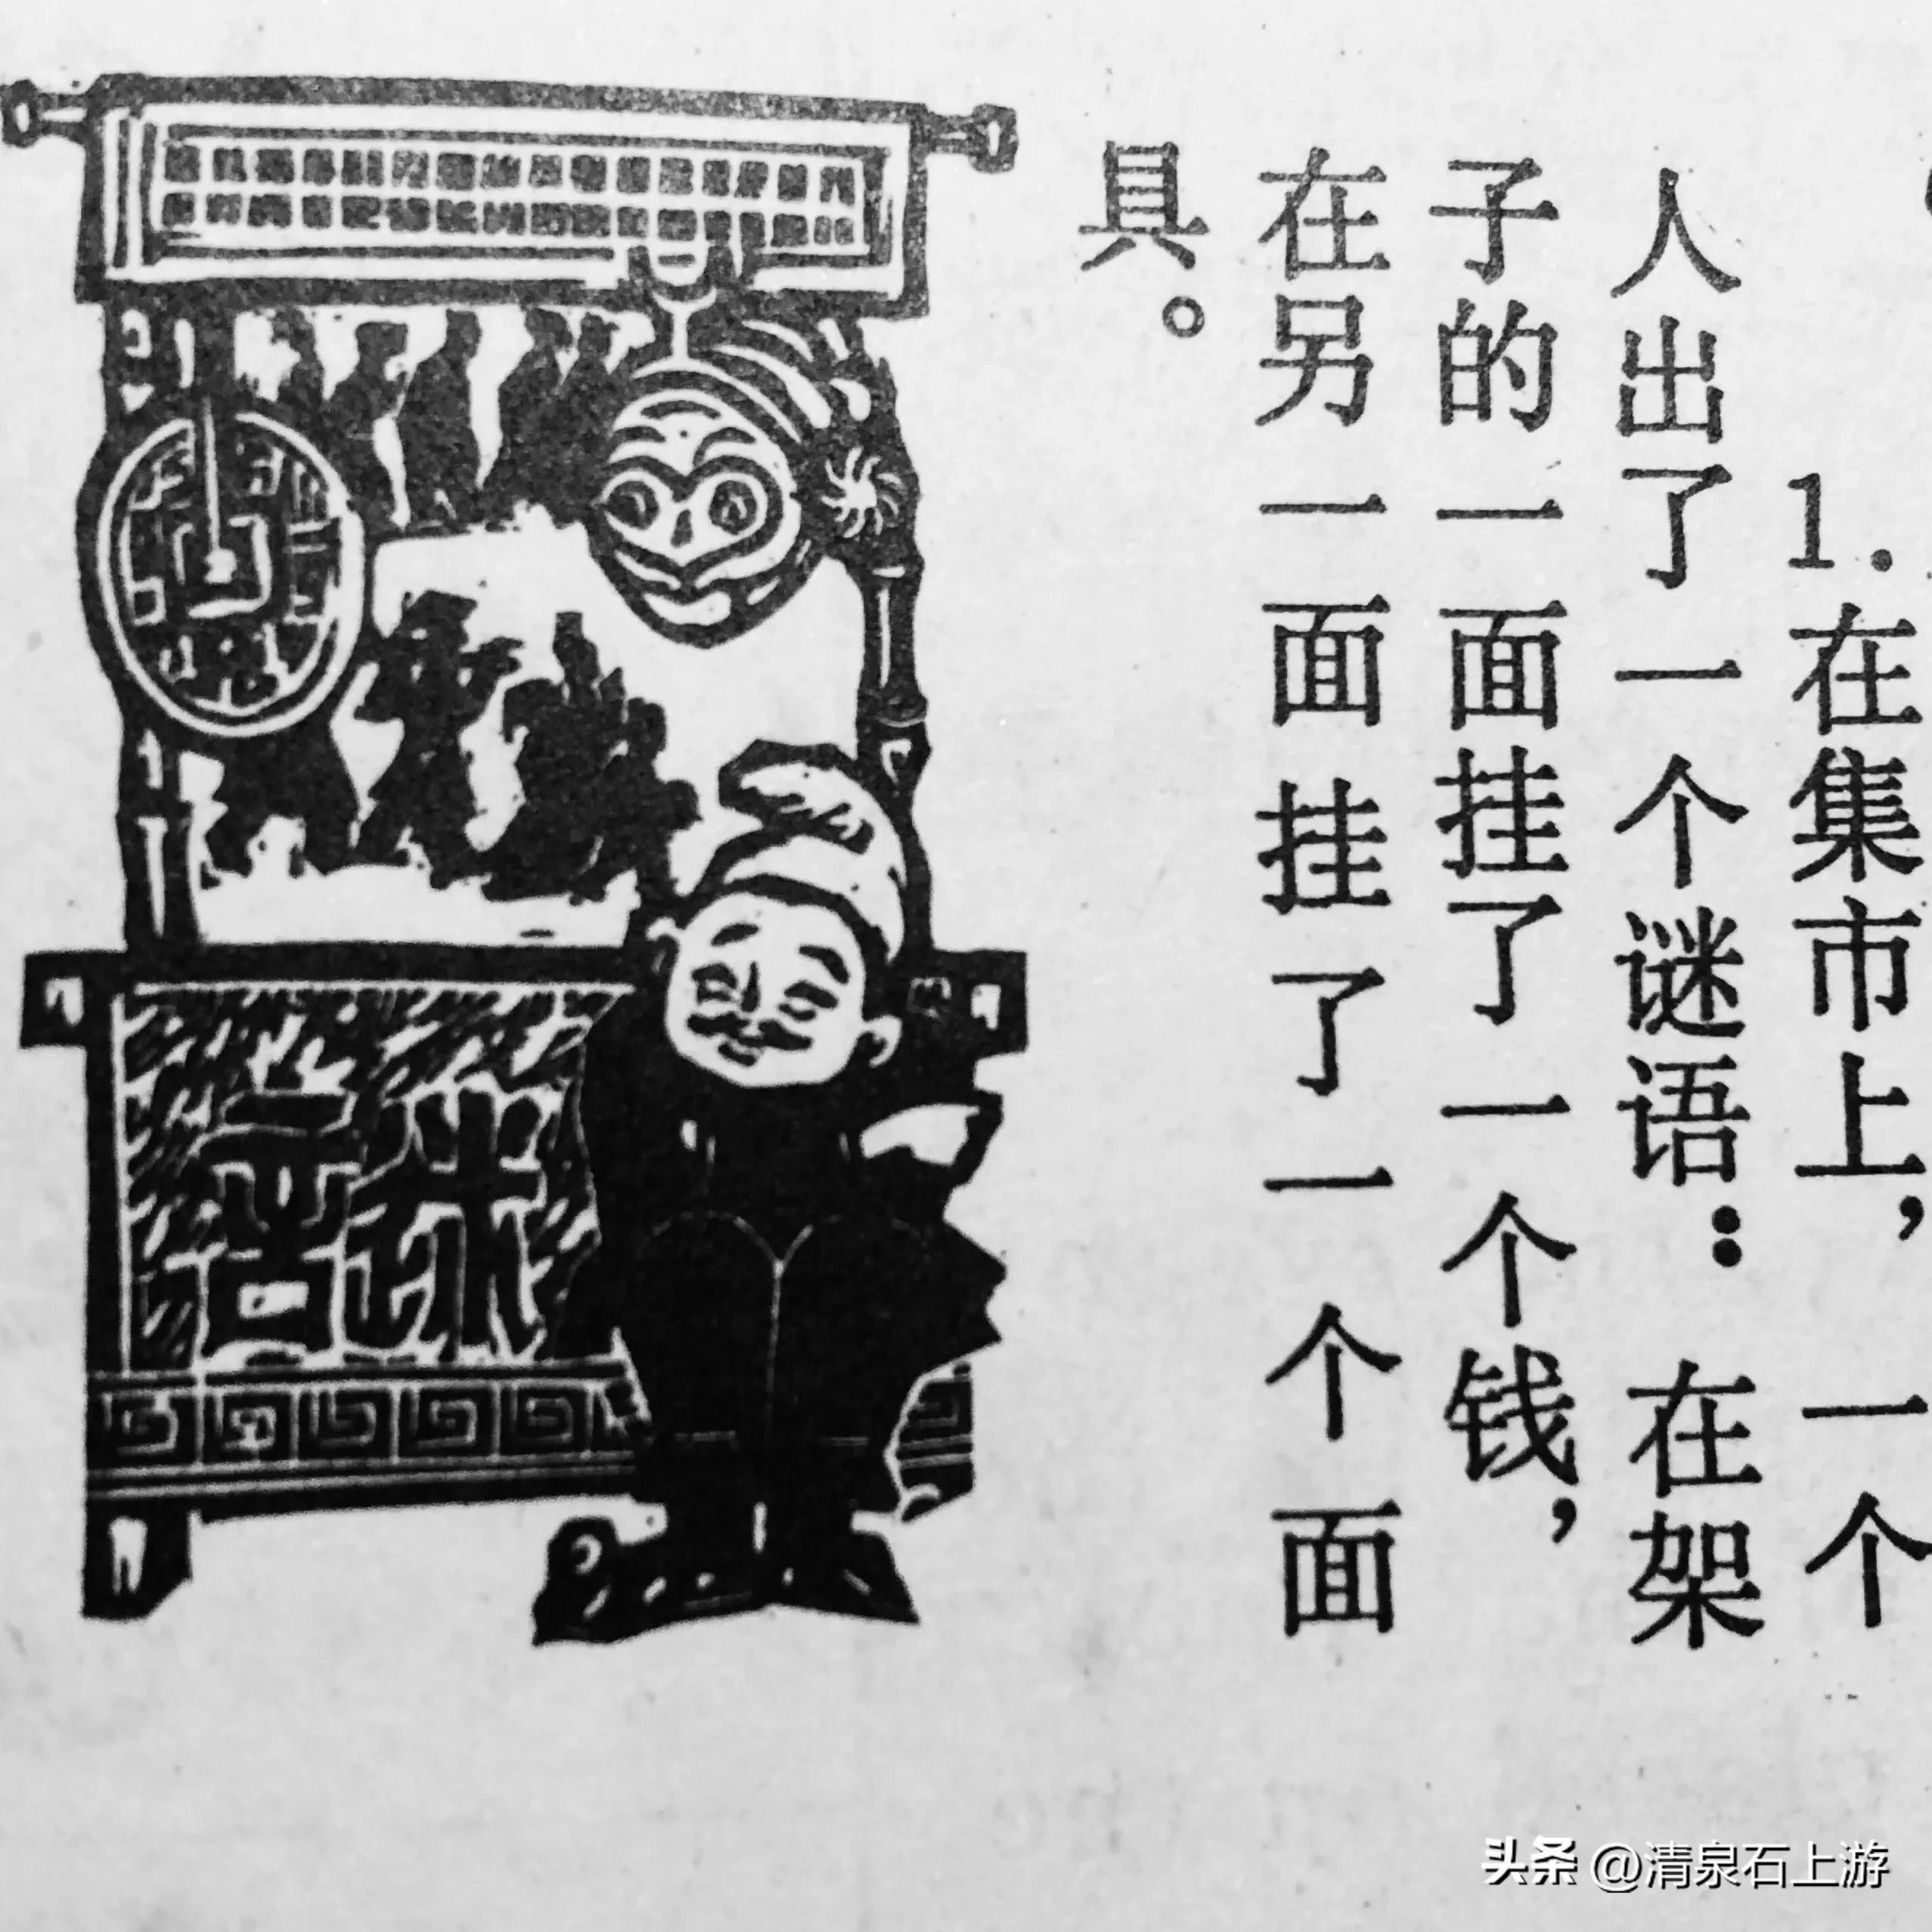 1.在集市上，一个
人出了一个谜语：在架
子的一面挂了一个钱，
在另一面挂了一个面
具。
头条 @清泉石上游